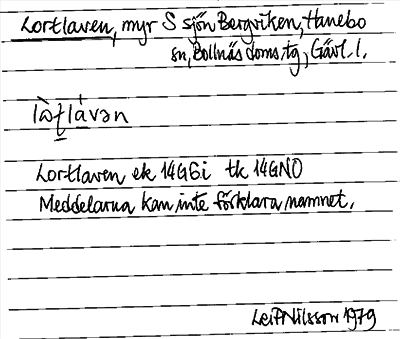 Lortlaven, myr S sjön Bergviken, Hanebo
sn, Bollnäs doms:tg, Gävl. l.
Lortlaven ek 14G6i tk 14GNO
Meddelarna kan inte förklara namnet.
Leif Nilsson 1979